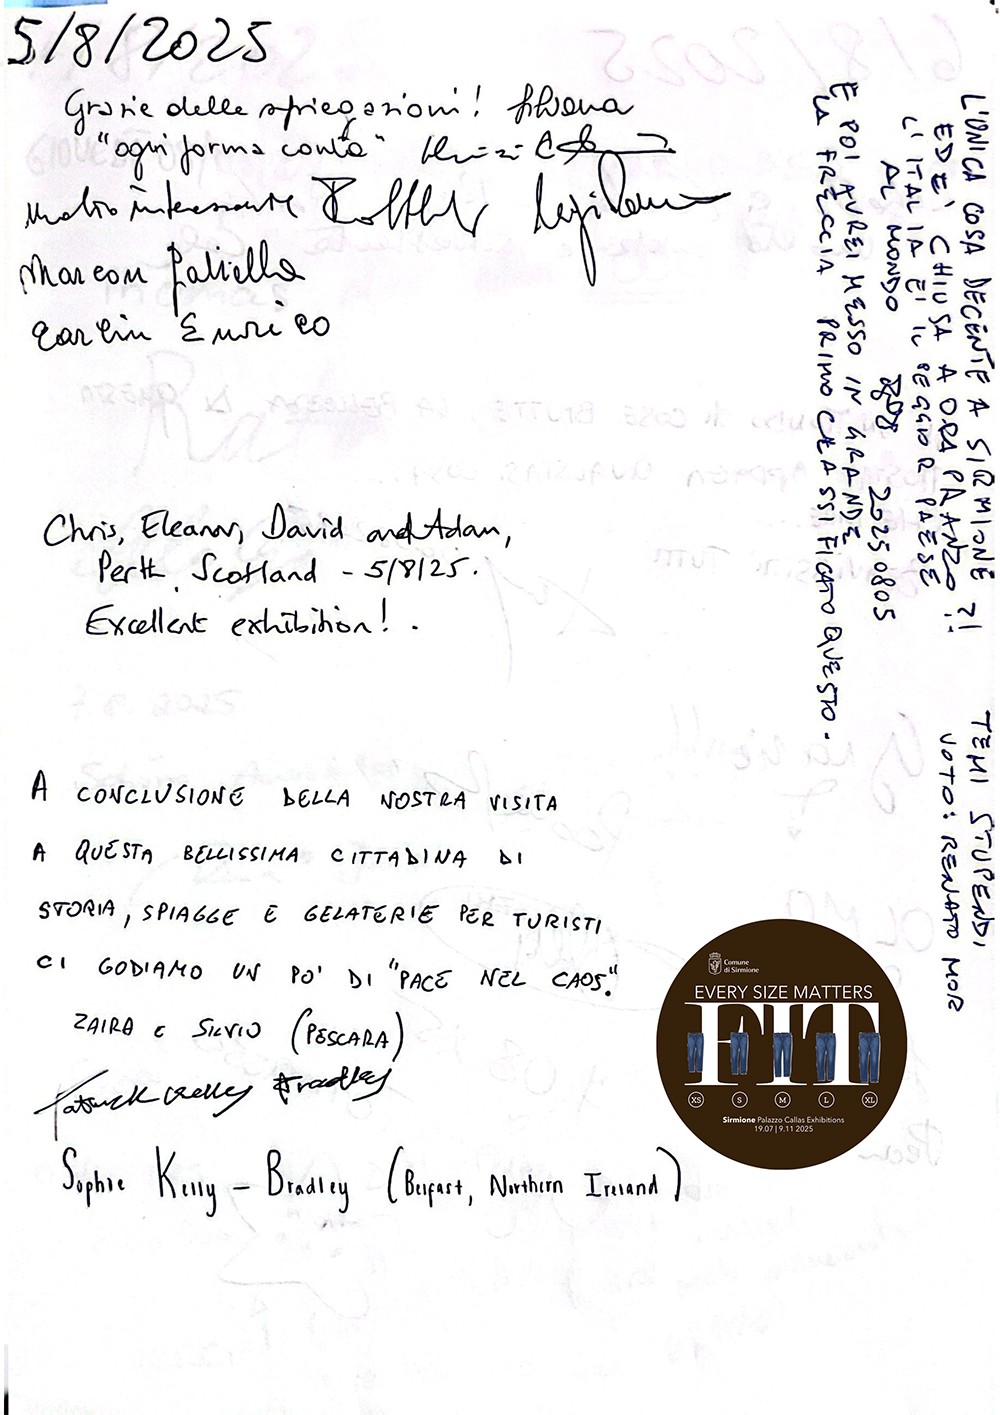 5/8/2025
Grazie delle spiegazioni! Silvana
"ogni forma conta"
Molto interessante
Marcon Gabriella
Carlin Enrico
Chris, Eleanor, David and Adam,
Perth, Scotland - 5/8/25.
Excellent exhibition!.
A CONCLUSIONE DELLA NOSTRA VISITA
A QUESTA BELLISSIMA CITTADINA DI
STORIA, SPIAGGE E GELATERIE PER TURISTI
CI GODIAMO UN PO' DI "PACE NEL CAOS."
ZAIRA E SILVIO (PESCARA)
Patrick Kelly Bradley
Sophie Kelly - Bradley (Belfast, Northern Ireland)
L'UNICA COSA DECENTE A SIRMIONE
ED E' CHIUSA A ORA PRANZO?!
L'ITALIA E' IL PEGGIOR PAESE
AL MONDO 20250805
E POI AVREI MESSO IN GRANDE
LA FRECCIA PRIMO CLASSIFICATO QUESTO.
TEMI STUPENDI
VOTO: RENATO MOR
Comune
di Sirmione
EVERY SIZE MATTERS
XS S M L XL
Sirmione Palazzo Callas Exhibitions
19.07 | 9.11 2025